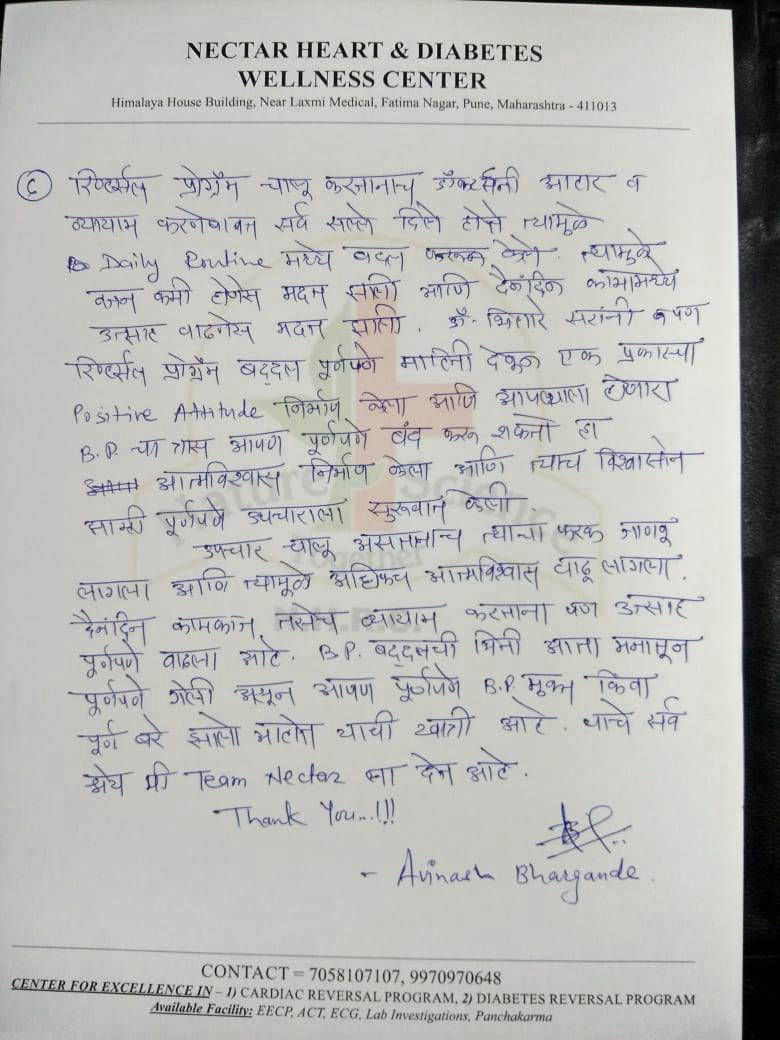 NECTAR HEART & DIABETES
WELLNESS CENTER
Himalaya House Building, Near Laxmi Medical, Fatima Nagar, Pune, Maharashtra - 411013
रिव्हर्सल प्रोग्रॅम चालू करतानाच डॉक्टर्सनी आहार व
व्यायाम करणेबाबत सर्व सल्ले दिले होते त्यामुळे
Daily Routine मध्ये बदल केले. त्यामुळे
वजन कमी होणेस मदत झाली आणि दैनंदिन कामामध्ये
उत्साह वाढणेस मदत झाली. डॉ. सरांनी पण
रिव्हर्सल प्रोग्रॅम बद्दल पूर्णपणे माहिती देवून एक प्रकारचा
Positive Attitude निर्माण केला आणि आपल्याला होणारा
B.P. चा त्रास आपण पूर्णपणे बंद करू शकतो हा
आत्मविश्वास निर्माण केला आणि त्याच विश्वासाने
आम्ही पूर्णपणे उपचाराला सुरूवात केली
उपचार चालू असतानाच त्याचा फरक जाणवू
लागला आणि त्यामुळे अधिकच आत्मविश्वास वाढू लागला.
दैनंदिन कामकाज तसेच व्यायाम करताना पण उत्साह
पूर्णपणे वाढला आहे. B.P. बद्दलची भिती आता मनातून
पूर्णपणे गेली असून आपण पूर्णपणे B.P. मुक्त किंवा
पूर्ण बरे झालो आहोत याची खात्री आहे. याचे सर्व
श्रेय मी Team Nectar ला देत आहे.
Thank You...!!!
- Avinash Bhargande.
CONTACT = 7058107107, 9970970648
CENTER FOR EXCELLENCE IN – 1) CARDIAC REVERSAL PROGRAM, 2) DIABETES REVERSAL PROGRAM
Available Facility: EECP, ACT, ECG, Lab Investigations, Panchakarma